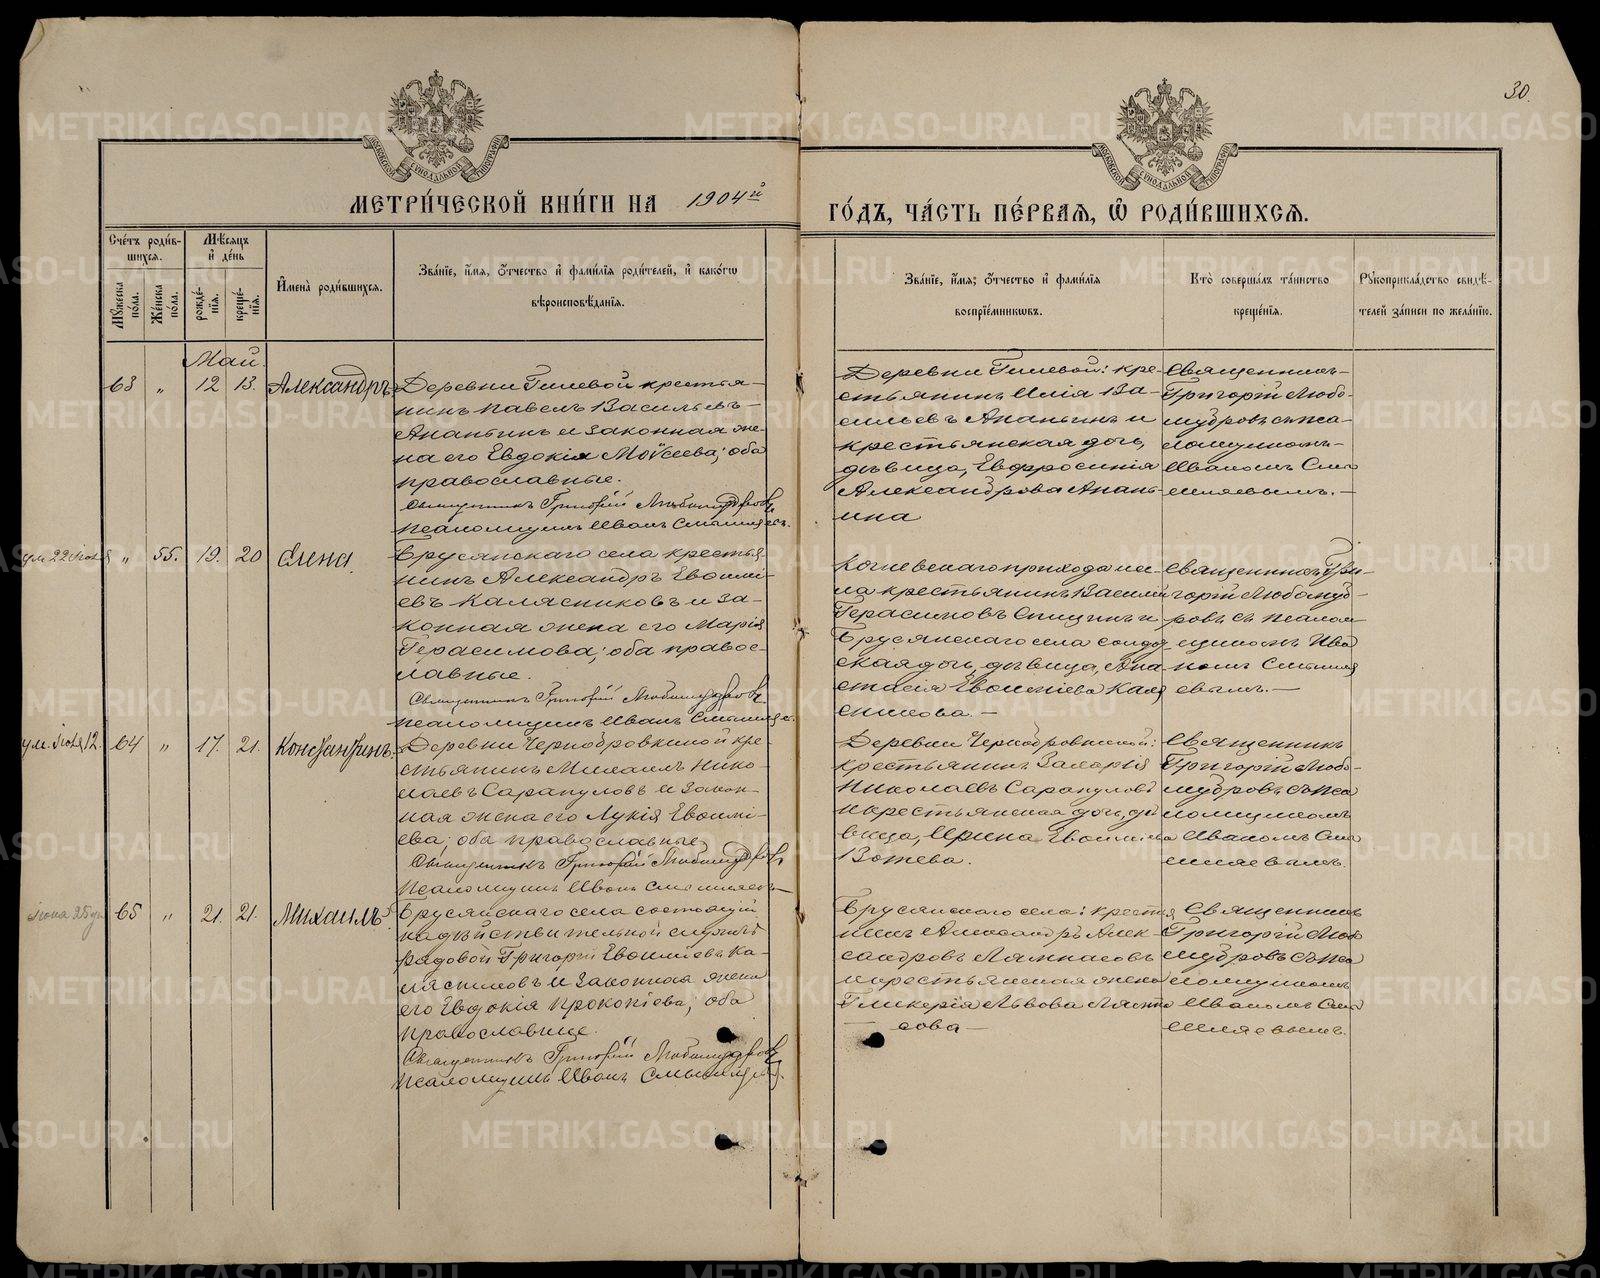 30.
МЕТРИ́ЧЕСКОЙ КНИ́ГИ НА 1904й
ГО́ДЪ, ЧА́СТЬ ПЕ́РВАЯ, Ѽ РОДИ́ВШИХСЯ.
МОСКОВСКОЙ СУНОДАЛЬНОЙ ТИПОГРАФІИ
МОСКОВСКОЙ СУНОДАЛЬНОЙ ТИПОГРАФІИ
Сче́тъ роди́в-
шихся.
Му́жеска по́ла.
Же́нска по́ла.
Мѣ́сяцъ и де́нь
рожде́-
нїя.
креще́-
нїя.
Имена̀ роди́вшихся.
Зва́нїе, и́мя, о́тчество и фами́лїя роди́телей, и како́гѡ
вѣроисповѣ́данїя.
Зва́нїе, и́мя, о́тчество и фами́лїя
воспрїе́мникѡвъ.
Кто̀ соверша́лъ та́инство
креще́нїя.
Рꙋкоприкла́дство свидѣ́-
телей за́писи по жела́нїю.
Май.
63 " 12 13. Александръ.
Деревни Гилевой крестья-
нинъ Павелъ Васильевъ
Ананьинъ и законная же-
на его Евдокія Моѵсеева; оба
православные.
Священникъ Григорій Любомудровъ
Псаломщикъ Иванъ Смышляевъ.
Деревни Гилевой: кре-
стьянинъ Илія Ва-
сильевъ Ананьинъ и
крестьянская дочь,
дѣвица, Евфросинія
Александрова Анань-
ина
Священникъ
Григорій Любо-
мудровъ съ пса-
ломщикомъ
Иваномъ Смы
шляевымъ.
ум. 22 Іюля " 55. 19. 20 Елена.
Брусянскаго села крестья
нинъ Александръ Евѳимі-
евъ Калясниковъ и за-
конная жена его Марія
Герасимова; оба правос-
лавные.
Священникъ Григорій Любомудровъ
Псаломщикъ Иванъ Смышляевъ.
на крестьянинъ Василій
Герасимовъ Спицинъ и
Брусянскаго села солдат
ская дочь, дѣвица, Ана
стасія Евѳиміева Каля
сникова.
Священникъ Гри-
горій Любомуд-
ровъ съ псалом-
щикомъ Ива
номъ Смышля
евымъ.
ум. Іюля 12. 64 " 17. 21. Константинъ.
Деревни Чернобровкиной кре-
стьянинъ Михаилъ Нико-
лаевъ Сарапуловъ и закон-
ная жена его Лукія Евѳимі-
ева; оба православные
Священникъ Григорій Любомудровъ
Псаломщикъ Иванъ Смышляевъ
Деревни Чернобровкиной:
крестьянинъ Захарія
Николаевъ Сарапуловъ
и крестьянская дочь, дѣ
вица, Ирина Евѳиміева
Вожева.
Священникъ
Григорій Любо-
мудровъ съ пса
ломщикомъ
Иваномъ Смы
шляевымъ.
Іюня 25 ум. 65 " 21. 21. Михаилъ.
Брусянскаго села состоящій
на дѣйствительной службѣ
рядовой Григорій Евѳиміевъ Ка-
лясниковъ и законная жена
его Евдокія Прокопіева; оба
православные.
Священникъ Григорій Любомудровъ
Псаломщикъ Иванъ Смышляевъ.
Брусянскаго села: крестья
нинъ Александръ Алек-
сандровъ
и крестьянская жена
Гликерія Львова
сова
Священникъ
Григорій Любо
мудровъ съ пса
ломщикомъ
Иваномъ Смы
шляевымъ.
METRIKI.GASO-URAL.RU